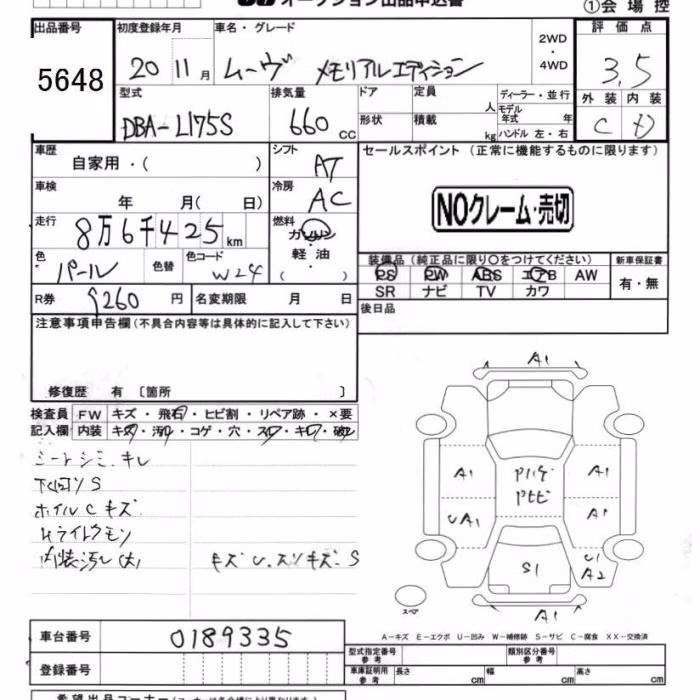 オークション出品申込書
①会場控
出品番号
5648
初度登録年月
20 11月
車名・グレード
ムーヴ メモリアルエディション
2WD
・
4WD
評価点
3.5
外装 内装
C D
型式
DBA-L175S
排気量
660 CC
ドア
形状
定員
人
積載
kg
ディーラー・並行
モデル
年式 年
ハンドル 左・右
車歴
自家用・( )
シフト
AT
車検
年 月( 日)
冷房
AC
走行
8万6千425km
燃料
ガソリン
軽油
( )
色
パール
色替
色コード
W24
R券
9260円
名変期限 月 日
セールスポイント (正常に機能するものに限ります)
NOクレーム・売切
装備品 (純正品に限り○をつけてください)
PS PW ABS エアB AW
SR ナビ TV カワ
新車保証書
有・無
後日品
注意事項申告欄(不具合内容等は具体的に記入して下さい)
修復歴 有 〔箇所 〕
検査員
記入欄
FW キズ・飛石・ヒビ割・リペア跡・×要
内装 キズ・汚れ・コゲ・穴・スレ・キレ・破レ
シートシミ.キレ
下回りS
ホイルCキズ
ライトクモン
内装汚レ(大) キズU.スリキズ.S
A1
A1
UA1
A1
A1
U1
A2
S1
A1
スペア
A-キズ E-エクボ U-凹み W-補修跡 S-サビ C-腐食 XX-交換済
車台番号
0189335
登録番号
型式指定番号
参考
類別区分番号
参考
車庫証明用
参考
長さ cm
幅 cm
高さ cm
希望出品コーナー